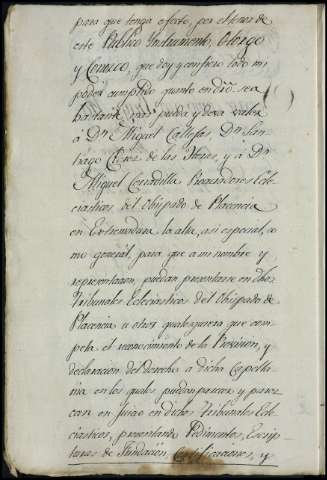 para que tenga efecto, por el tenor de
este Publico Instrumento, Otorgo
y Conozco, que doy y confiero todo mi
poder cumplido quanto en dro. sea
bastante, mas pueda y deva valer
à Dn. Miguel Callejas, Dn. San-
tiago de las Heras, y à Dn.
Miguel Procuradores Ecle-
ciasticos del Obispado de Placencia
en Extremadura la alta, asi especial, co
mo general, para que a mi nombre y
representacion, puedan presentarse en dhos
Tribunales Ecleciasticos del Obispado de
Placencia u otros qualesquiera que com-
peta el reconocimiento de la Provision, y
declaracion del Derecho a dicha Capella-
nia en los quales puedan parecer y parez-
can en Juicio en dichos Tribunales Ecle-
ciasticos, presentando Pedimentos, Escrip-
turas de Fundacion, Certificaciones, y